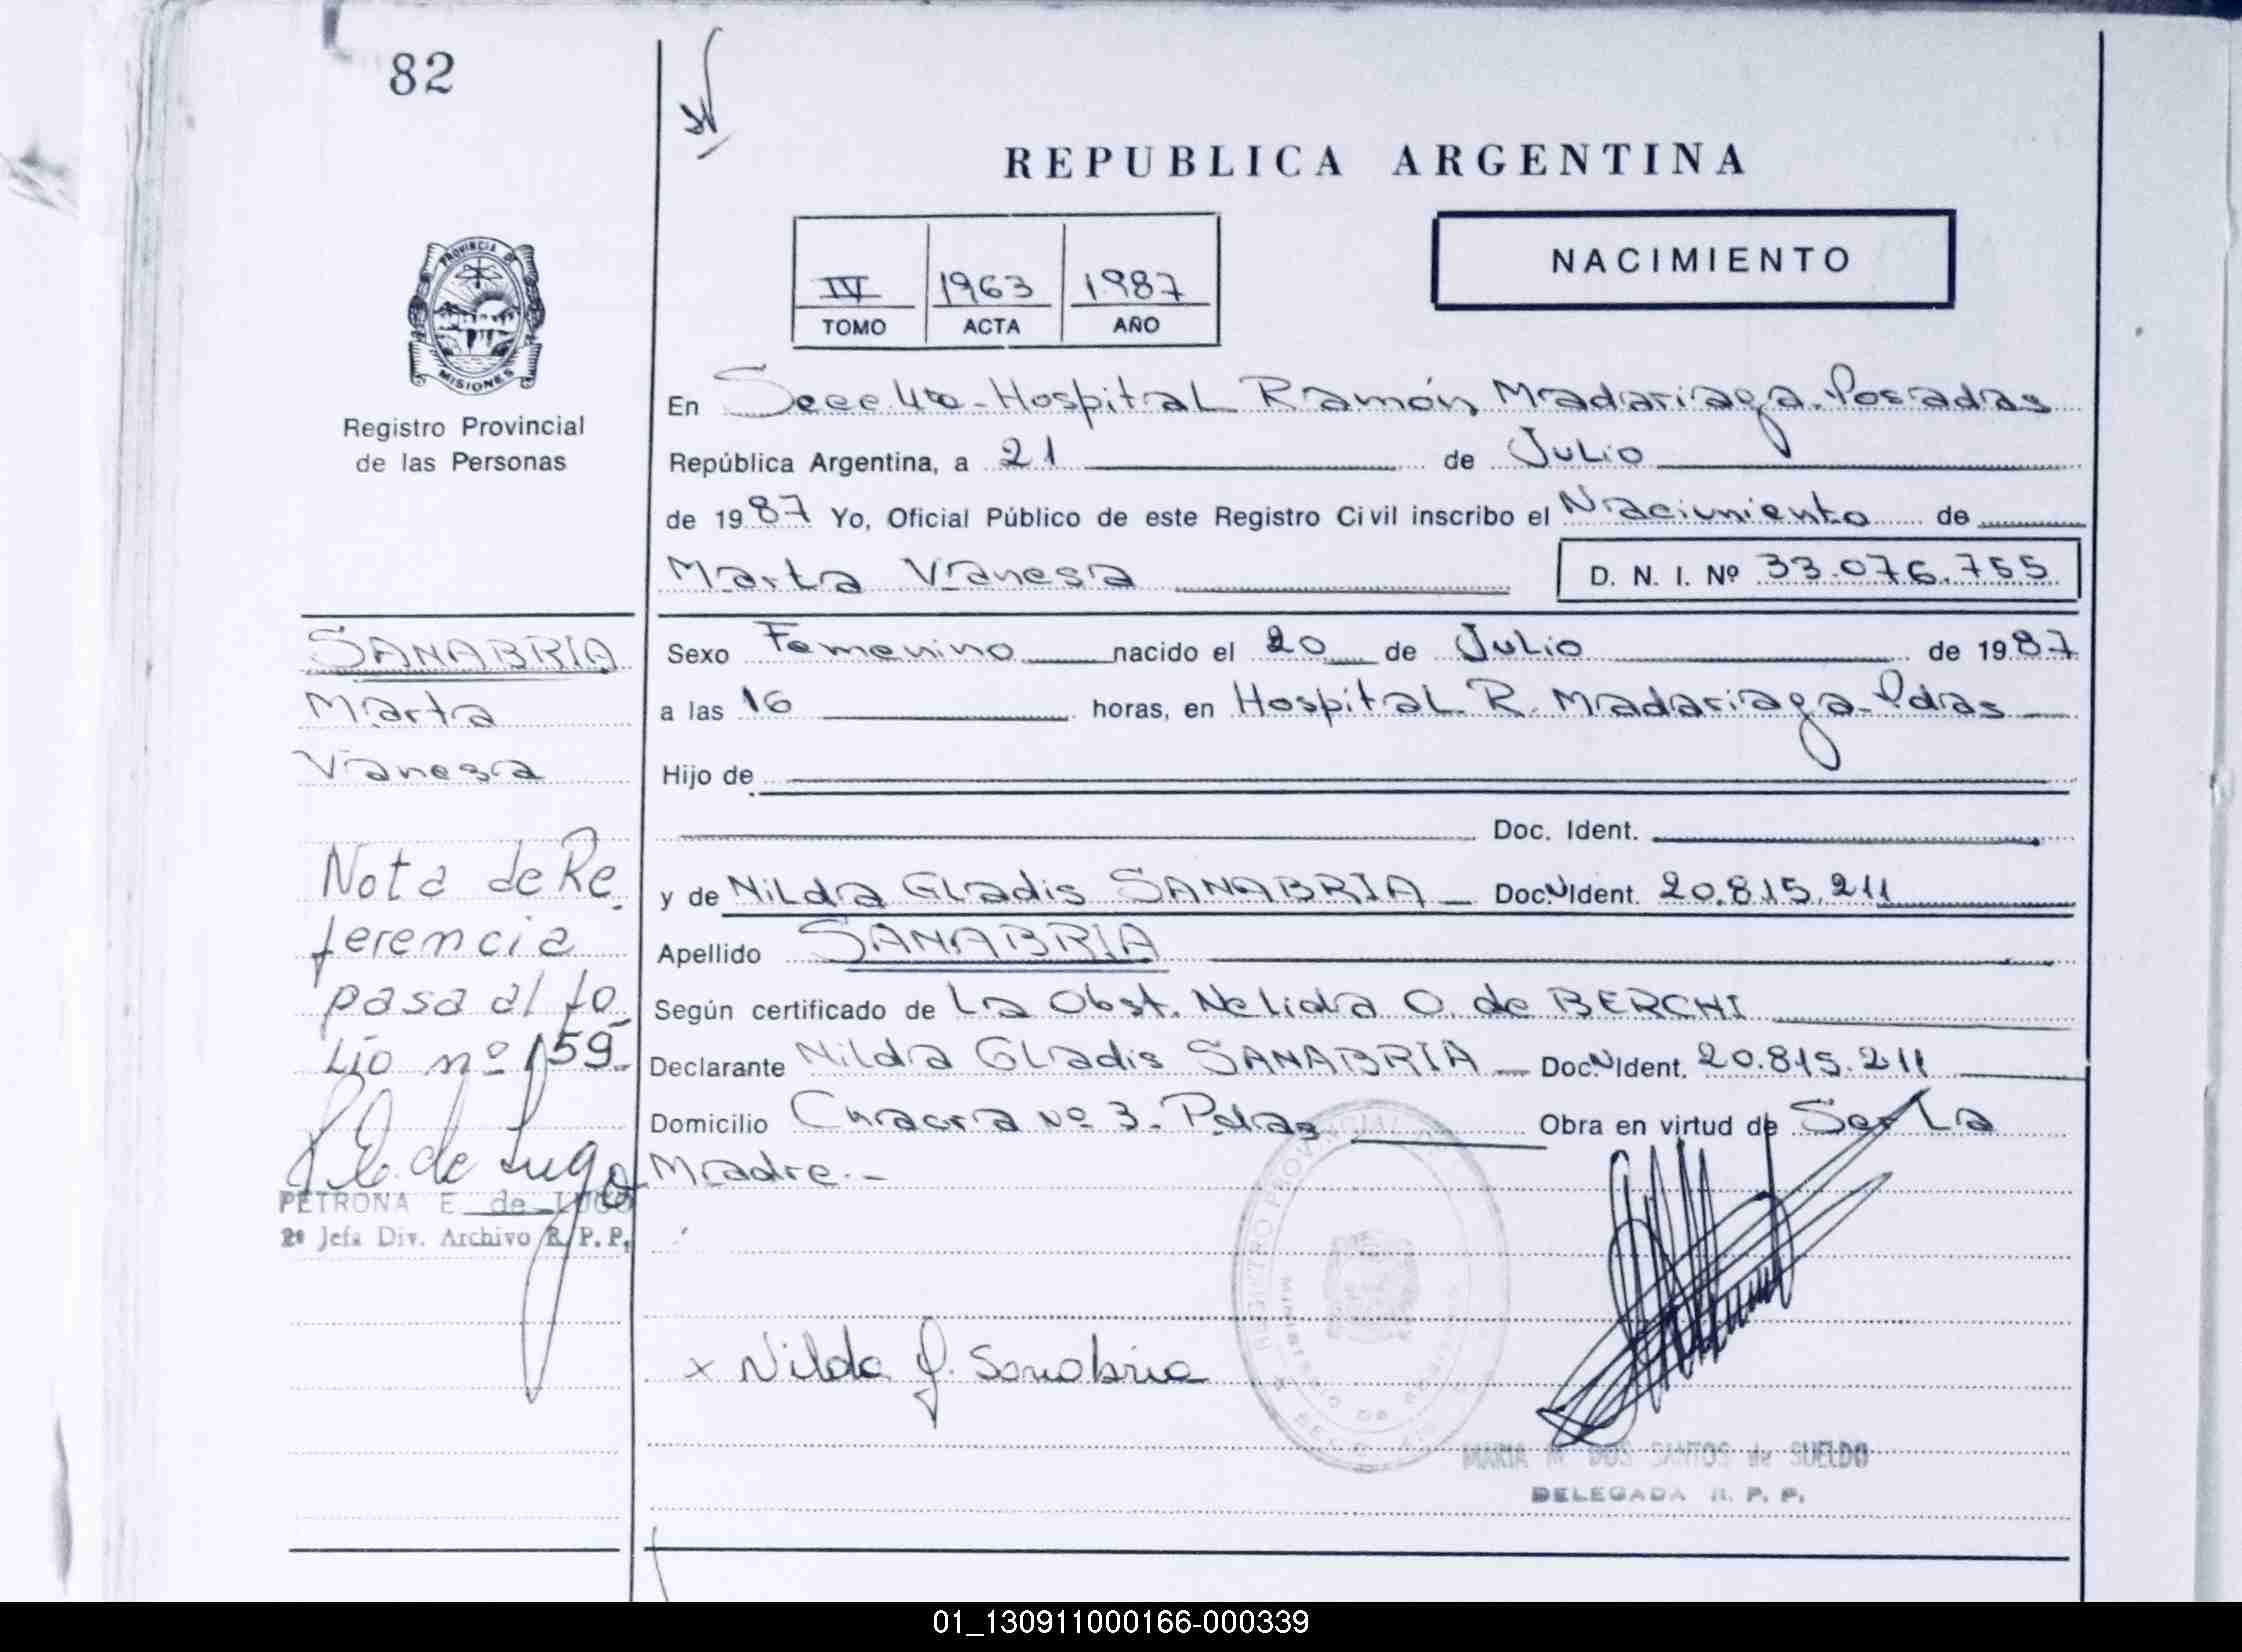 82
REPUBLICA ARGENTINA
NACIMIENTO
IV 1963 1987
TOMO ACTA AÑO
PROVINCIA DE MISIONES
Registro Provincial
de las Personas
En Secc 4ta - Hospital Ramón Madariaga - Posadas
República Argentina, a 21 de Julio
de 1987 Yo, Oficial Público de este Registro Civil inscribo el Nacimiento de
Marta Vanesa D. N. I. Nº 33.076.755
SANABRIA
Marta
Vanesa
Sexo Femenino nacido el 20 de Julio de 1987
a las 16 horas, en Hospital R. Madariaga - Pdas
Hijo de
Doc. Ident.
y de Nilda Gladis SANABRIA - Doc. Ident. 20.815.211
Apellido SANABRIA
Según certificado de La Obst. Nelida O. de BERCHI
Declarante Nilda Gladis SANABRIA - Doc. Ident. 20.815.211
Domicilio Chacra Nº 3 - Pdas Obra en virtud de Ser La
Madre.-
Nota de Re
ferencia
pasa al fo
lio nº 159.-
P. E. de Lugo
PETRONA E. de LUGO
2º Jefa Div. Archivo R. P. P.
x Nilda G. Sanabria
REGISTRO PROVINCIAL
MARIA M. DOS SANTOS de SUELDO
DELEGADA R. P. P.
01_130911000166-000339